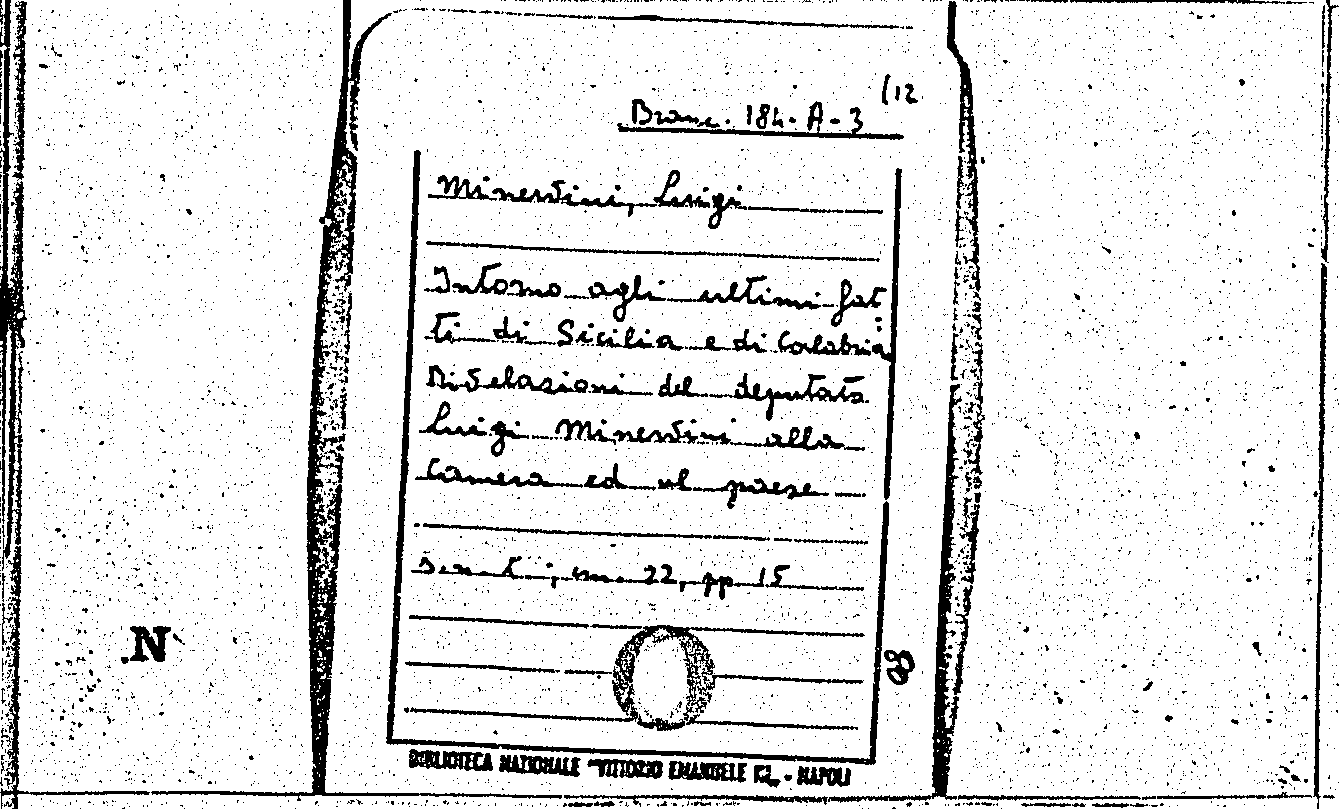 (12
Branc. 184-A-3
Minervini, Luigi
Intorno agli ultimi fat
ti di Sicilia e di Calabria
Rivelazioni del deputato
Luigi Minervini alla
Camera ed al paese
s.n.t.; cm. 22, pp 15
N
8
BIBLIOTECA NAZIONALE "VITTORIO EMANUELE - NAPOLI